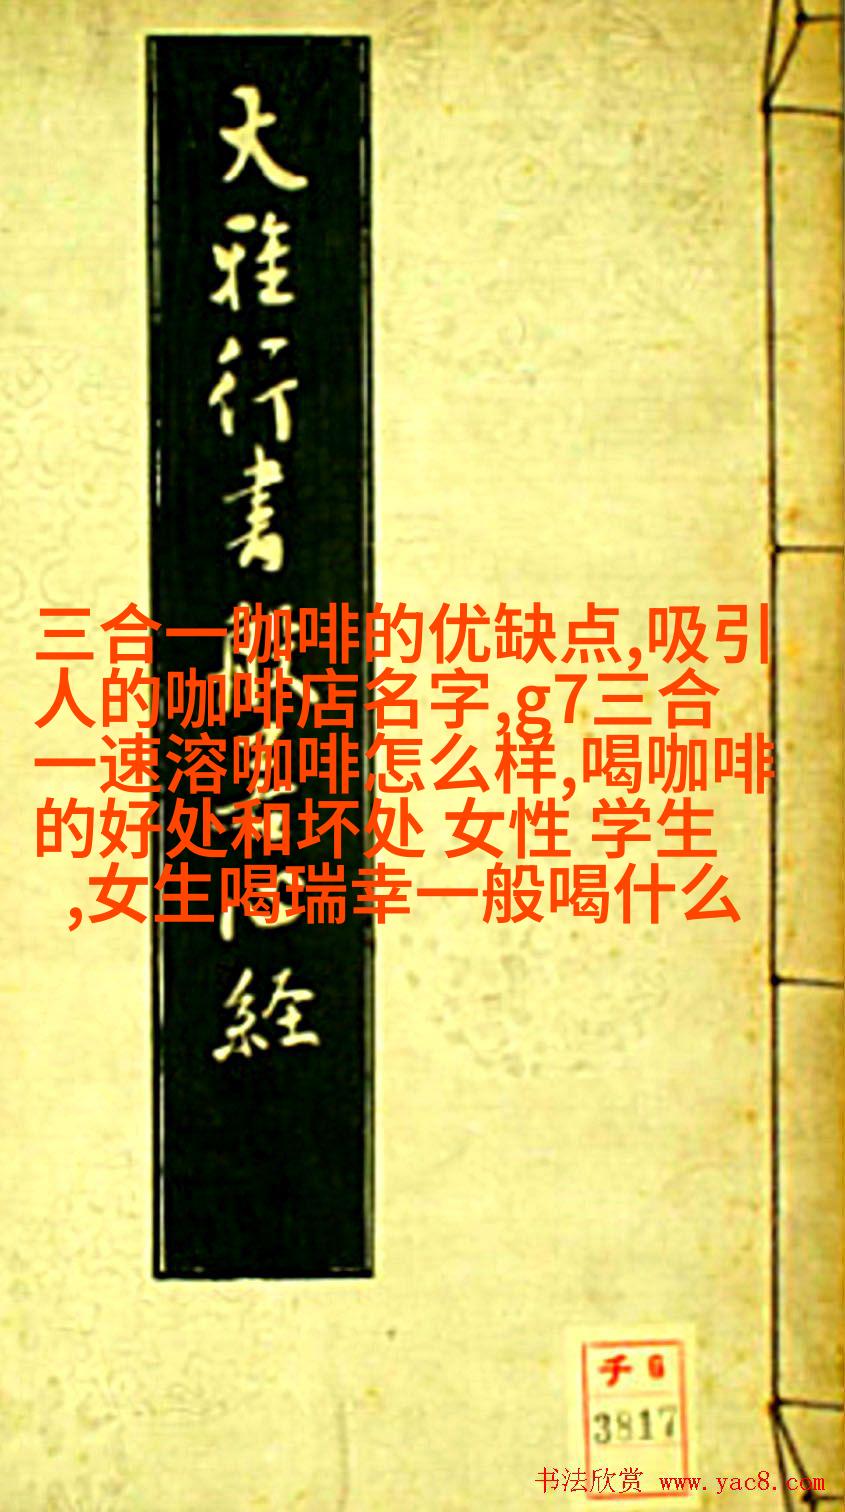 大雅行書
経
三合一咖啡的优缺点,吸引
人的咖啡店名字,g7三合
一速溶咖啡怎么样,喝咖啡
的好处和坏处 女性 学生
,女生喝瑞幸一般喝什么
千 6
3817
书法欣赏 www.yac8.com